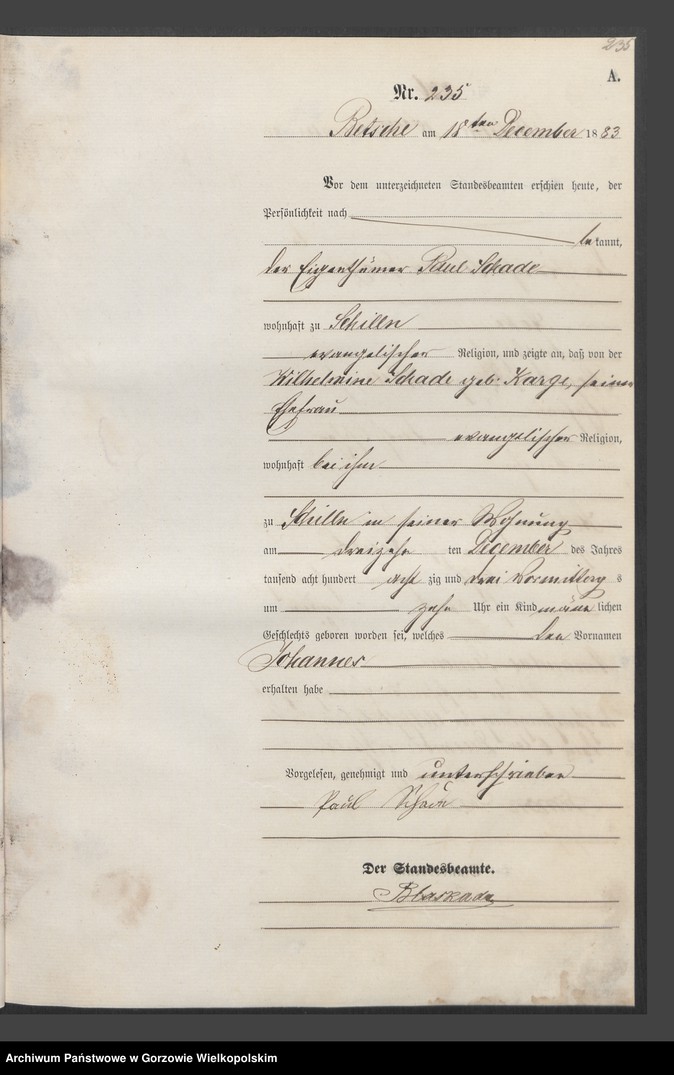 235
A.
Nr. 235
Betsche am 18ten December 1883
Vor dem unterzeichneten Standesbeamten erschien heute, der
Persönlichkeit nach
bekannt,
der Eigenthümer Paul Schade
wohnhaft zu Schilln
evangelischer Religion, und zeigte an, daß von der
Wilhelmine Schade geb. Karge, seiner
Ehefrau
evangelischer Religion,
wohnhaft bei ihm
zu Schilln in seiner Wohnung
am dreizehn ten Dezember des Jahres
tausend acht hundert acht zig und drei Vormittag s
um zehn Uhr ein Kind männ lichen
Geschlechts geboren worden sei, welches den Vornamen
Johannes
erhalten habe
Vorgelesen, genehmigt und unterschrieben
Paul Schade
Der Standesbeamte.
Archiwum Państwowe w Gorzowie Wielkopolskim